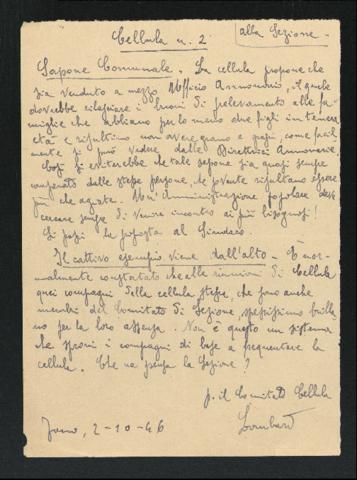 Cellula n. 2
alla Sezione -
Sapone Comunale. - La cellula propone che
sia venduto a mezzo Ufficio Annonario, il quale
dovrebbe rilasciare i buoni di prelevamento alle fa
miglie che abbiano per lo meno due figli in tenera
età e risultino non avere grano e grassi, come facil
mente si può vedere dalle Direttive Annonarie
Così si eviterebbe che tale sapone sia quasi sempre
comperato dalle stesse persone, che sovente risultano essere
più che agiate. Un'Amministrazione popolare deve
cercare sempre di venire incontro ai più bisognosi!
Si passi la proposta al Sindaco.
Il cattivo esempio viene dall'alto - È nor-
malmente constatato che alle riunioni di Cellula
quei compagni della cellula stessa, che sono anche
membri del Comitato di Sezione, spessissimo brilla
no per la loro assenza. Non è questo un sistema
che sproni i compagni di base a frequentare la
cellula. Che ne pensa la Sezione?
p. il Comitato Cellula
Lombardi
2-10-46